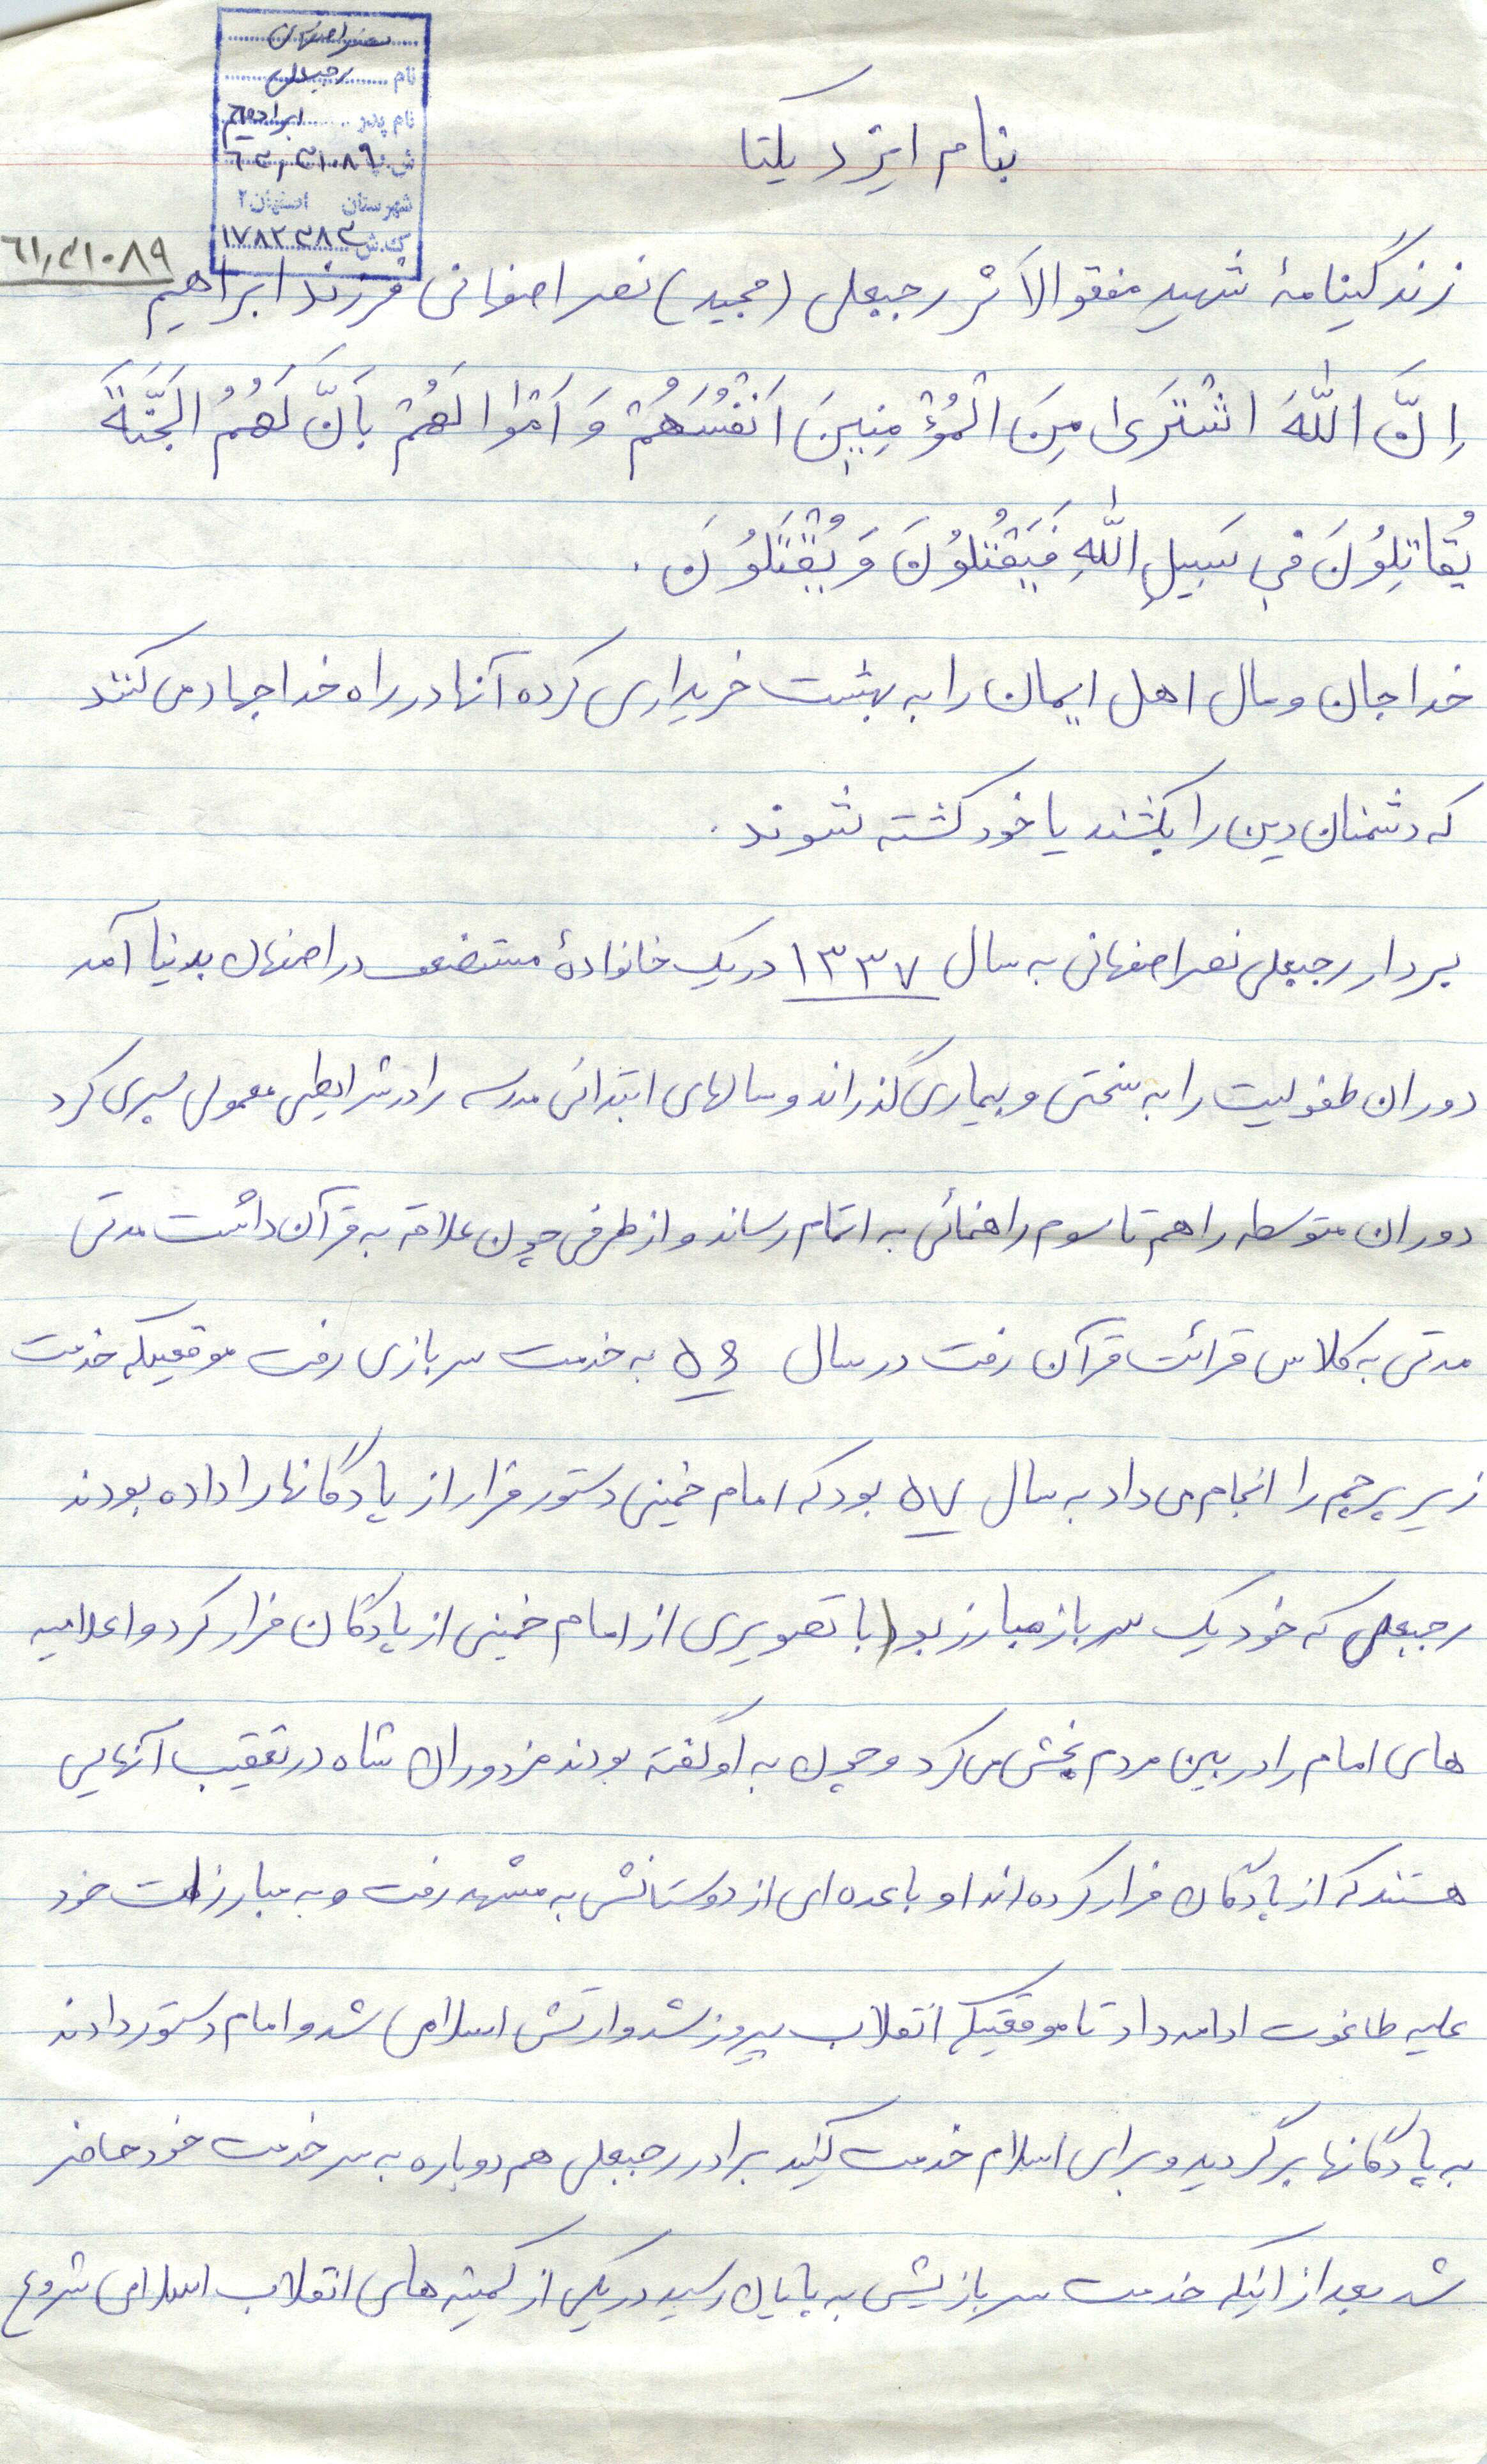 نصر اصفهانی
نام رجبعلی
نام پدر ابراهیم
شهرستان اصفهان ۲
ک.ش ۱۷۸۲۳۸۳
بنام ایزد یکتا
۶۱٫۳۱۰۸۹
زندگینامهٔ شهید مفقودالاثر رجبعلی (مجید) نصر اصفهانی فرزند ابراهیم
اِنَّ اللّٰهَ اشْتَرَیٰ مِنَ الْمُؤْمِنِینَ اَنْفُسَهُمْ وَ اَمْوٰالَهُمْ بِاَنَّ لَهُمُ الْجَنَّةَ
یُقاتِلُونَ فی سَبیلِ اللّٰهِ فَیَقْتُلُونَ وَ یُقْتَلُونَ .
خدا جان و مال اهل ایمان را به بهشت خریداری کرده آنها در راه خدا جهاد می کنند
که دشمنان دین را بکشند یا خود کشته شوند .
بردار رجبعلی نصر اصفهانی به سال ۱۳۳۷ در یک خانوادهٔ مستضعف در اصفهان بدنیا آمد
دوران طفولیت را به سختی و بیماری گذراند و سالهای ابتدائی مدرسه را در شرایطی معمولی سپری کرد
دوران متوسطه را هم تا سوم راهنمائی به اتمام رساند و از طرفی چون علاقه به قرآن داشت مدتی
مدتی به کلاس قرائت قرآن رفت در سال ۵۶ به خدمت سربازی رفت موقعیکه خدمت
زیر پرچم را انجام می داد به سال ۵۷ بود که امام خمینی دستور فرار از پادگانها را داده بودند
رجبعلی که خود یک سرباز مبارز بود با تصویری از امام خمینی از پادگان فرار کرد و اعلامیه
های امام را در بین مردم پخش می کرد و چون به او گفته بودند مزدوران شاه در تعقیب آنهایی
هستند که از پادگان فرار کرده اند او با عده ای از دوستانش به مشهد رفت و به مبارزات خود
علیه طاغوت ادامه داد تا موقعیکه انقلاب پیروز شد و ارتش اسلامی شد و امام دستور دادند
به پادگانها برگردید و برای اسلام خدمت کنید برادر رجبعلی هم دوباره به سر خدمت خود حاضر
شد بعد از اینکه خدمت سربازیش به پایان رسید در یکی از کمیته های انقلاب اسلامی شروع